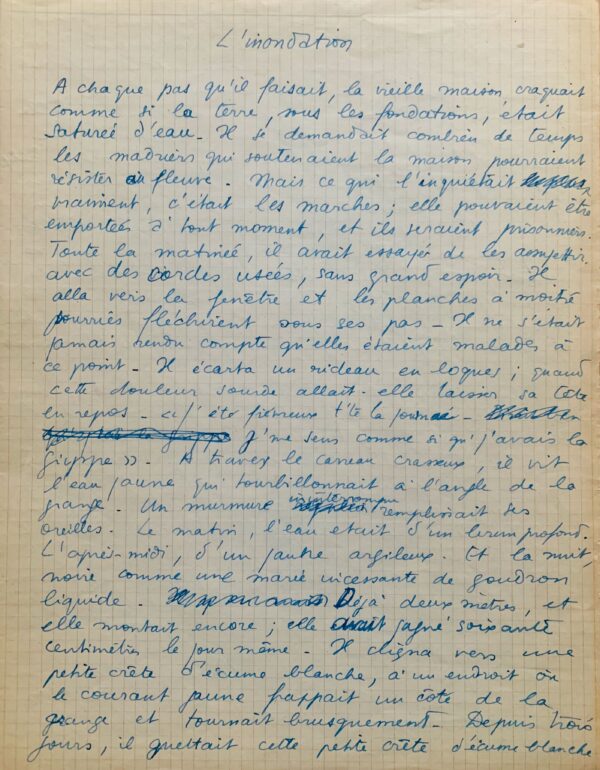 L'inondation
A chaque pas qu'il faisait, la vieille maison craquait
comme si la terre, sous les fondations, était
saturée d'eau - Il se demandait combien de temps
les madriers qui soutenaient la maison pourraient
résister au fleuve. Mais ce qui l'inquiétait
vraiment, c'était les marches ; elle pouvaient être
emportées à tout moment, et ils seraient prisonniers.
Toute la matinée, il avait essayé de les assujettir
avec des cordes usées, sans grand espoir - Il
alla vers la fenêtre et les planches à moitié
pourries fléchirent sous ses pas - Il ne s'était
jamais rendu compte qu'elles étaient malades à
ce point - Il écarta un rideau en loques ; quand
cette douleur sourde allait-elle laisser sa tête
en repos - « j'ai été fiévreux t'te la journée -
J'me sens comme si qu'j'avais la
grippe ». A travers le carreau crasseux, il vit
l'eau jaune qui tourbillonnait à l'angle de la
grange. Un murmure ininterrompu remplissait ses
oreilles. Le matin, l'eau était d'un brun profond.
L'après-midi, d'un jaune argileux. Et la nuit,
noire comme une marée incessante de goudron
liquide. Déjà deux mètres, et
elle montait encore ; elle avait gagné soixante
centimètres le jour même - Il cligna vers une
petite crête d'écume blanche, à un endroit où
le courant jaune frappait un côté de la
grange et tournait brusquement - Depuis trois
jours, il guettait cette petite crête d'écume blanche